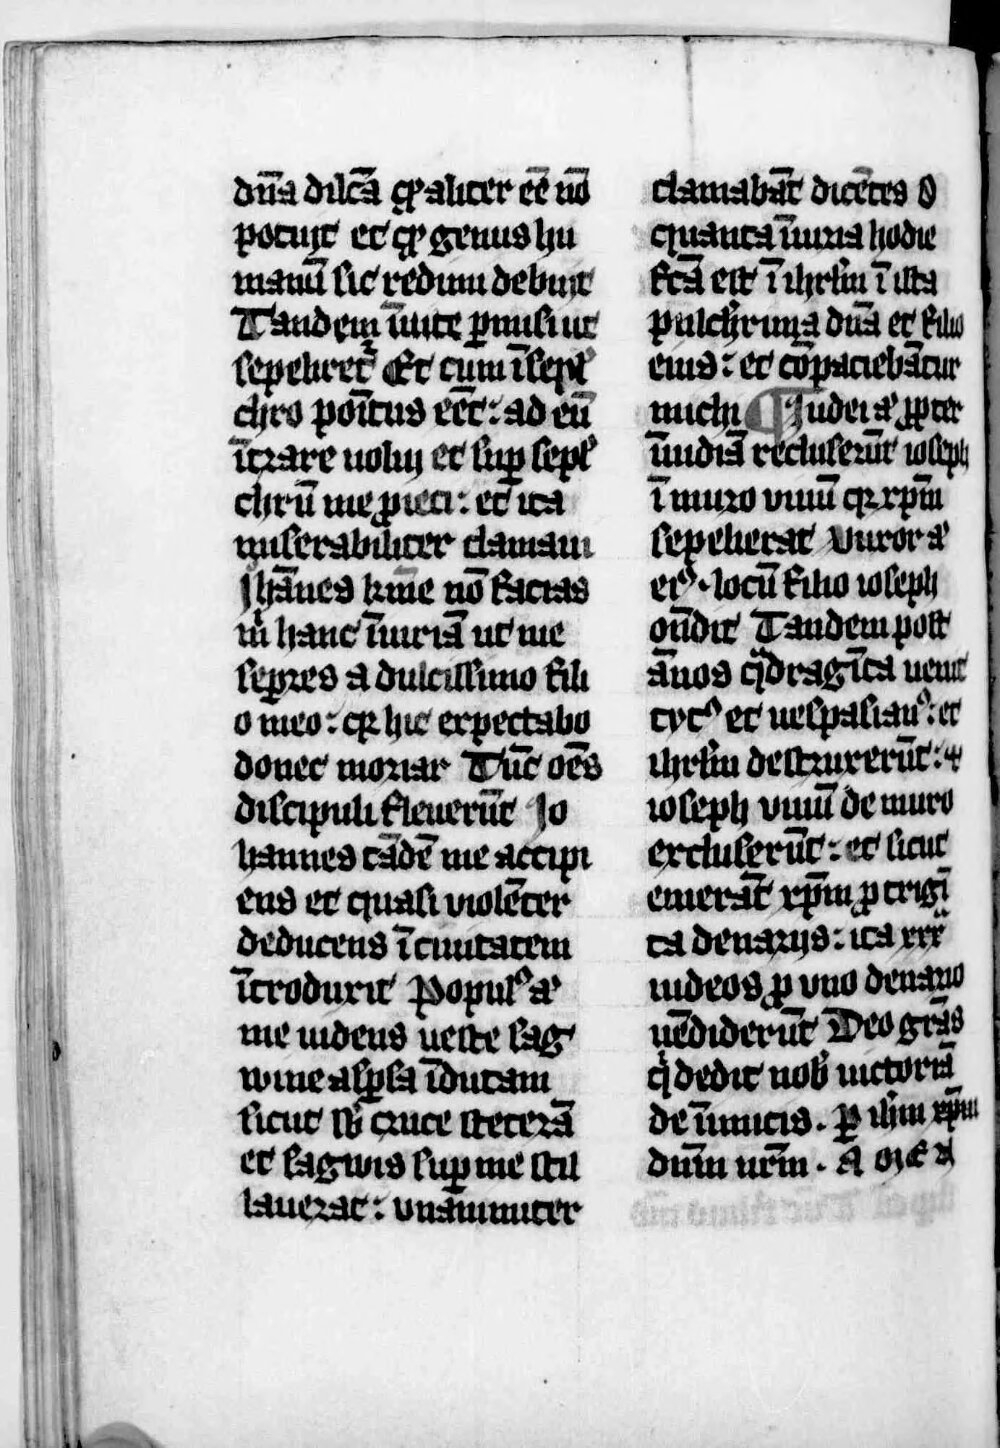 dn̄a dilc̄a ꝙ aliter eē nō
potuit et ꝙ genus hu
manū sic redimi debuit
Tandem īuite ꝑmisi ut
sepeliret᷑ Et cum ī sepl᷒
chro poītus eēt : ad eū
ītrare uolui et suꝑ sepl᷒
chrū me ꝓieci : et ita
miserabiliter clamaui
Joh̄anes kīme nō facias
m̍ hanc īiuriā ut me
seꝑes a dulcissimo fili
o meo : qꝛ hic expectabo
donec moriar Tūc oēs
discipuli fleuerūt Jo
hannes tādē me accipi
ens et quasi violēter
deducens ī ciuitatem
ītroduxit Popul᷒ aū
me uidens ueste sag
wine asꝑsa īdutam
sicut sb̄ cruce steterā
et sagwis suꝑ me stil
lauerat : vnāimiter
clamabāt dicētes O
quanta īiuria hodie
fc̄a est ī ihrlm̄ ī ista
pulch̍rima dn̄a et filio
eius : et cōpaciebātur
michi ¶ Judei aū ꝓpter
īuidiā recluserūt ioseph
ī muro viuū qꝛ xp̄m
sepelierat Vxor aū
ei᷒ · locū filio ioseph
on̄dit Tandem post
ānos qͣdragīta uenit
tyt᷒ et uespasian᷒ : et
ihrlm̄ destruxerūt : ⁊
ioseph viuū de muro
excluserūt : et sicut
emerāt xp̄m ꝓ trigī
ta denarijs : ita xxx
iudeos ꝓ vno denario
uēdiderūt Deo gr̄as
qͥ dedit nob̄ uictoriā
de īimicis . ꝑ ih̄m xp̄m
dn̄m nr̄m . A M E N